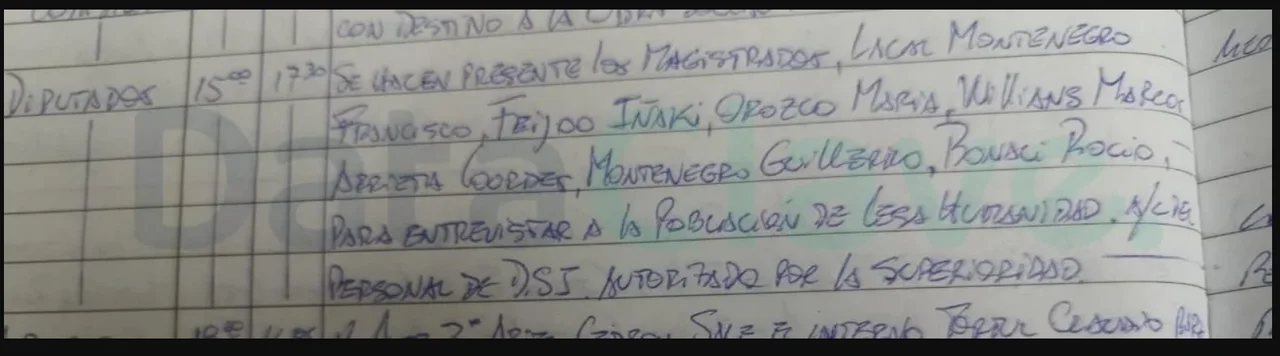 CON DESTINO A LA
DIPUTADOS 15:00 17:30 SE HACEN PRESENTE los MAGISTRADOS, LACAL MONTENEGRO
FRANCISCO, FEIJOO IÑAKI, OROZCO MARIA, WILLIANS MARCOS
ARRIETA LOORDES, MONTENEGRO GUILLERMO, BONACI ROCIO,
PARA ENTREVISTAR A la POBLACIÓN DE LESA HUMANIDAD. A/C DE
PERSONAL DE D.S.I. AUTORIZADO POR LA SUPERIORIDAD.
SALE INTERNO
DataClave.